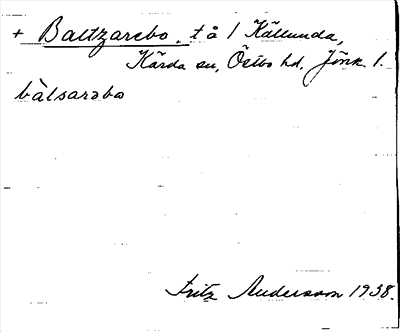 + Baltzarebo, t å 1 Källunda,
Kärda sn, Östbo hd, Jönk. l.
bàlsarəbo
Fritz Andersson 1938.